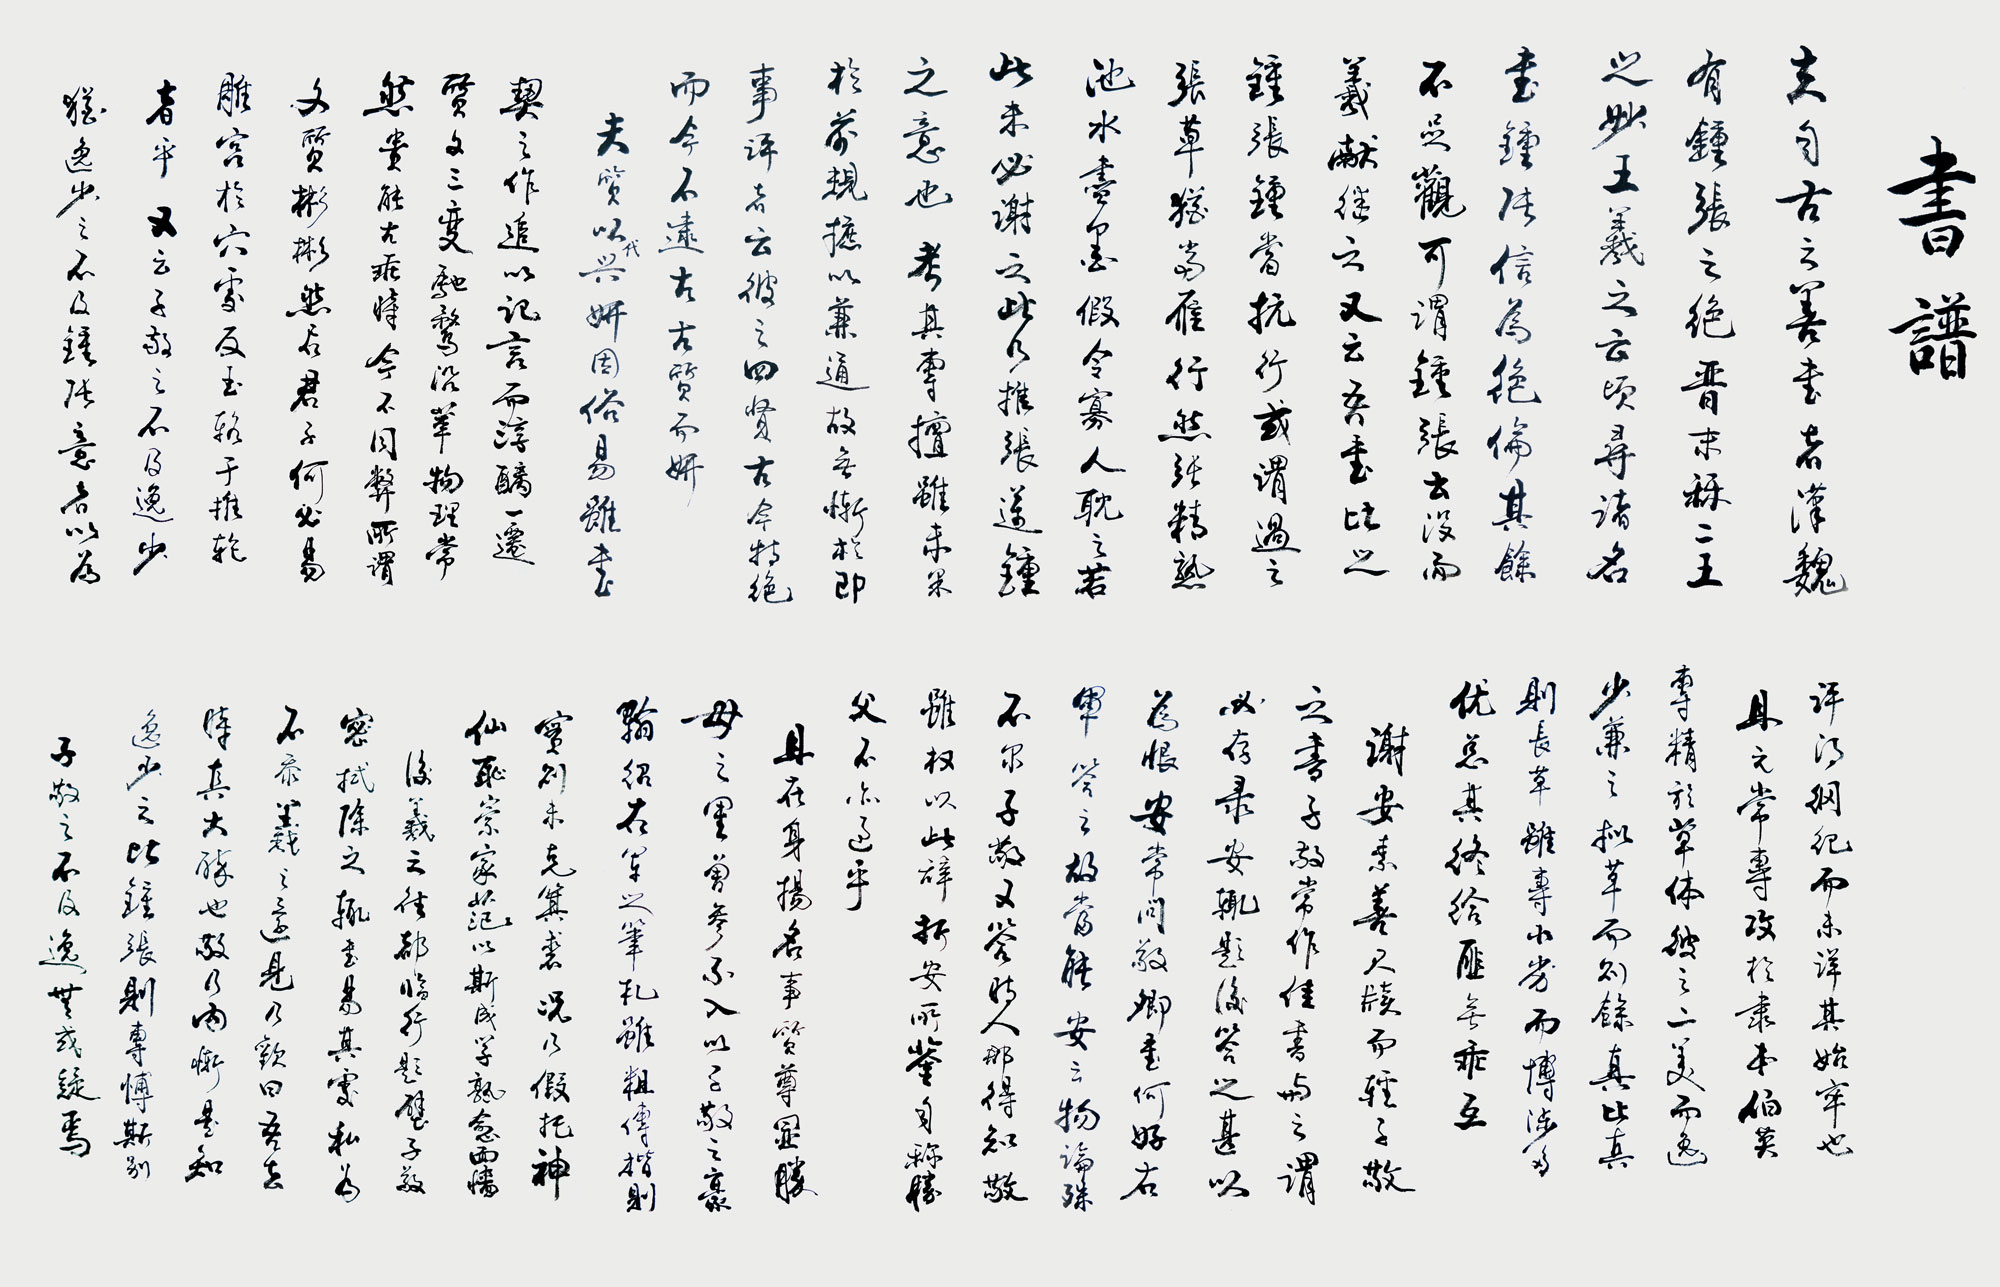 書譜
夫自古之善書者漢魏
有鍾張之絕晉末稱二王
之妙王羲之云頃尋諸名
書鍾張信為絕倫其餘
不足觀可謂鍾張云沒而
羲獻繼之又云吾書比之
鍾張鍾當抗行或謂過之
張草猶當雁行然張精熟
池水盡墨假令寡人耽之若
此未必謝之此乃推張邁鍾
之意也考其專擅雖未果
於前規摭以兼通故無慚於即
事評者云彼之四賢古今特絕
而今不逮古古質而妍
夫質以代興妍因俗易雖書
契之作追以記言而淳醨一遷
質文三變馳騖沿革物理常
然貴能古不乖時今不同弊所謂
文質彬彬然後君子何必易
雕宮於穴處反玉輅于椎輪
者乎又云子敬之不及逸少
猶逸少之不及鍾張意者以為
評得綱紀而未詳其始卒也
且元常專攻於隸書伯英
專精於草體彼之二美而逸
少兼之擬草而則餘真比真
則長草雖專小劣而博涉多
优总其終始匪無乖互
謝安素善尺牘而輕子敬
之書子敬常作佳書與之謂
必存录安輒題後答之甚以
為恨安嘗問敬卿書何如右
軍答之故當能安云物論殊
不尔子敬又答時人那得知敬
雖权以此辞折安所鉴自称勝
父不亦过乎
且立身揚名事資尊顯勝
母之里曾參不入以子敬之豪
翰紹右軍之筆札雖粗傳楷則
實則未克箕裘況乃假托神
仙恥崇家范以斯成学熟愈面墻
後羲之往都臨行題壁子敬
密拭除之輒書易其處私為
不忝羲之還見乃歎曰吾去
時真大醉也敬乃內慚是知
逸少之比鍾張則專博斯別
子敬之不及逸無或疑焉